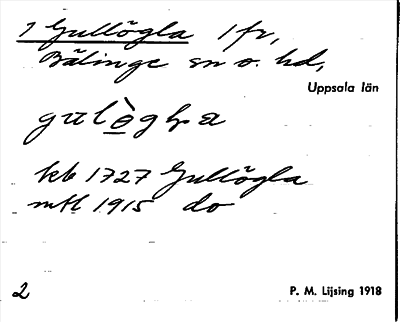 1 Gullögla 1 fr,
Bälinge sn o. hd,
Uppsala län
kb 1727 Gullögla
mtl 1915 do
2
P. M. Lijsing 1918